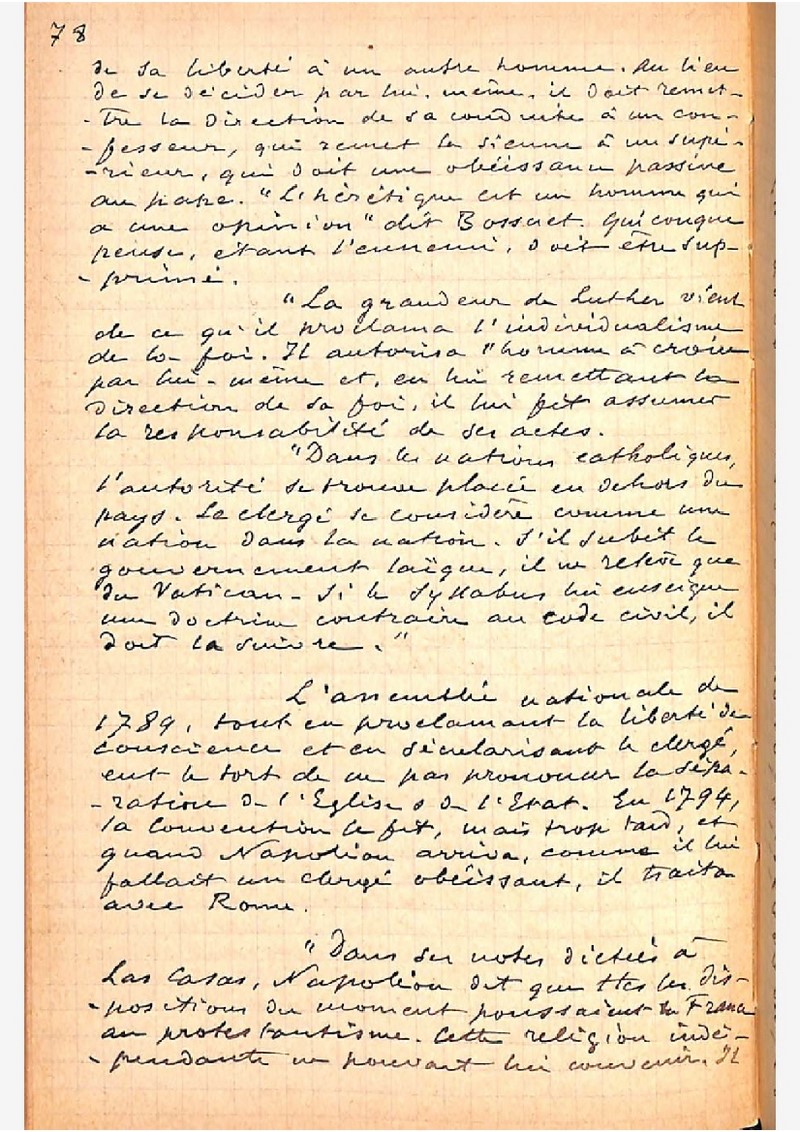 78
de sa liberté à un autre homme. Au lieu
de se décider par lui-même, il doit remet-
-tre la direction de sa conduite à un con-
-fesseur, qui remet la sienne à un supé-
-rieur, qui doit une obéissance passive
au pape. "L'hérétique est un homme qui
a une opinion" dit Bossuet. Quiconque
pense, étant l'ennemi, doit être sup-
-primé.
"La grandeur de Luther vient
de ce qu'il proclama l'individualisme
de la foi. Il autorisa l'homme à croire
par lui-même et, en lui remettant la
direction de sa foi, il lui fit assumer
la responsabilité de ses actes.
"Dans les nations catholiques,
l'autorité se trouve placée en dehors du
pays. Le clergé se considère comme une
nation dans la nation. S'il subit le
gouvernement laïque, il ne relève que
du Vatican - Si le Syllabus lui enseigne
une doctrine contraire au code civil, il
doit la suivre."
L'assemblée nationale de
1789, tout en proclamant la liberté de
conscience et en sécularisant le clergé,
eut le tort de ne pas prononcer la sépa-
-ration de l'Eglise & de l'Etat. En 1794,
la Convention le fit, mais trop tard, et
quand Napoléon arriva, comme il lui
fallait un clergé obéissant, il traita
avec Rome.
"Dans ses notes dictées à
Las Casas, Napoléon dit que ttes les dis-
-positions du moment poussaient la France
au protestantisme. Cette religion indé-
-pendante ne pouvant lui convenir. Il